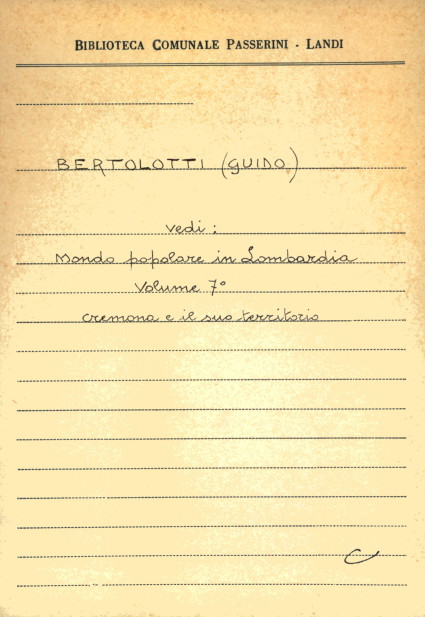 BIBLIOTECA COMUNALE PASSERINI - LANDI
BERTOLOTTI (GUIDO)
vedi :
Mondo popolare in Lombardia
Volume 7°
Cremona e il suo territorio
C